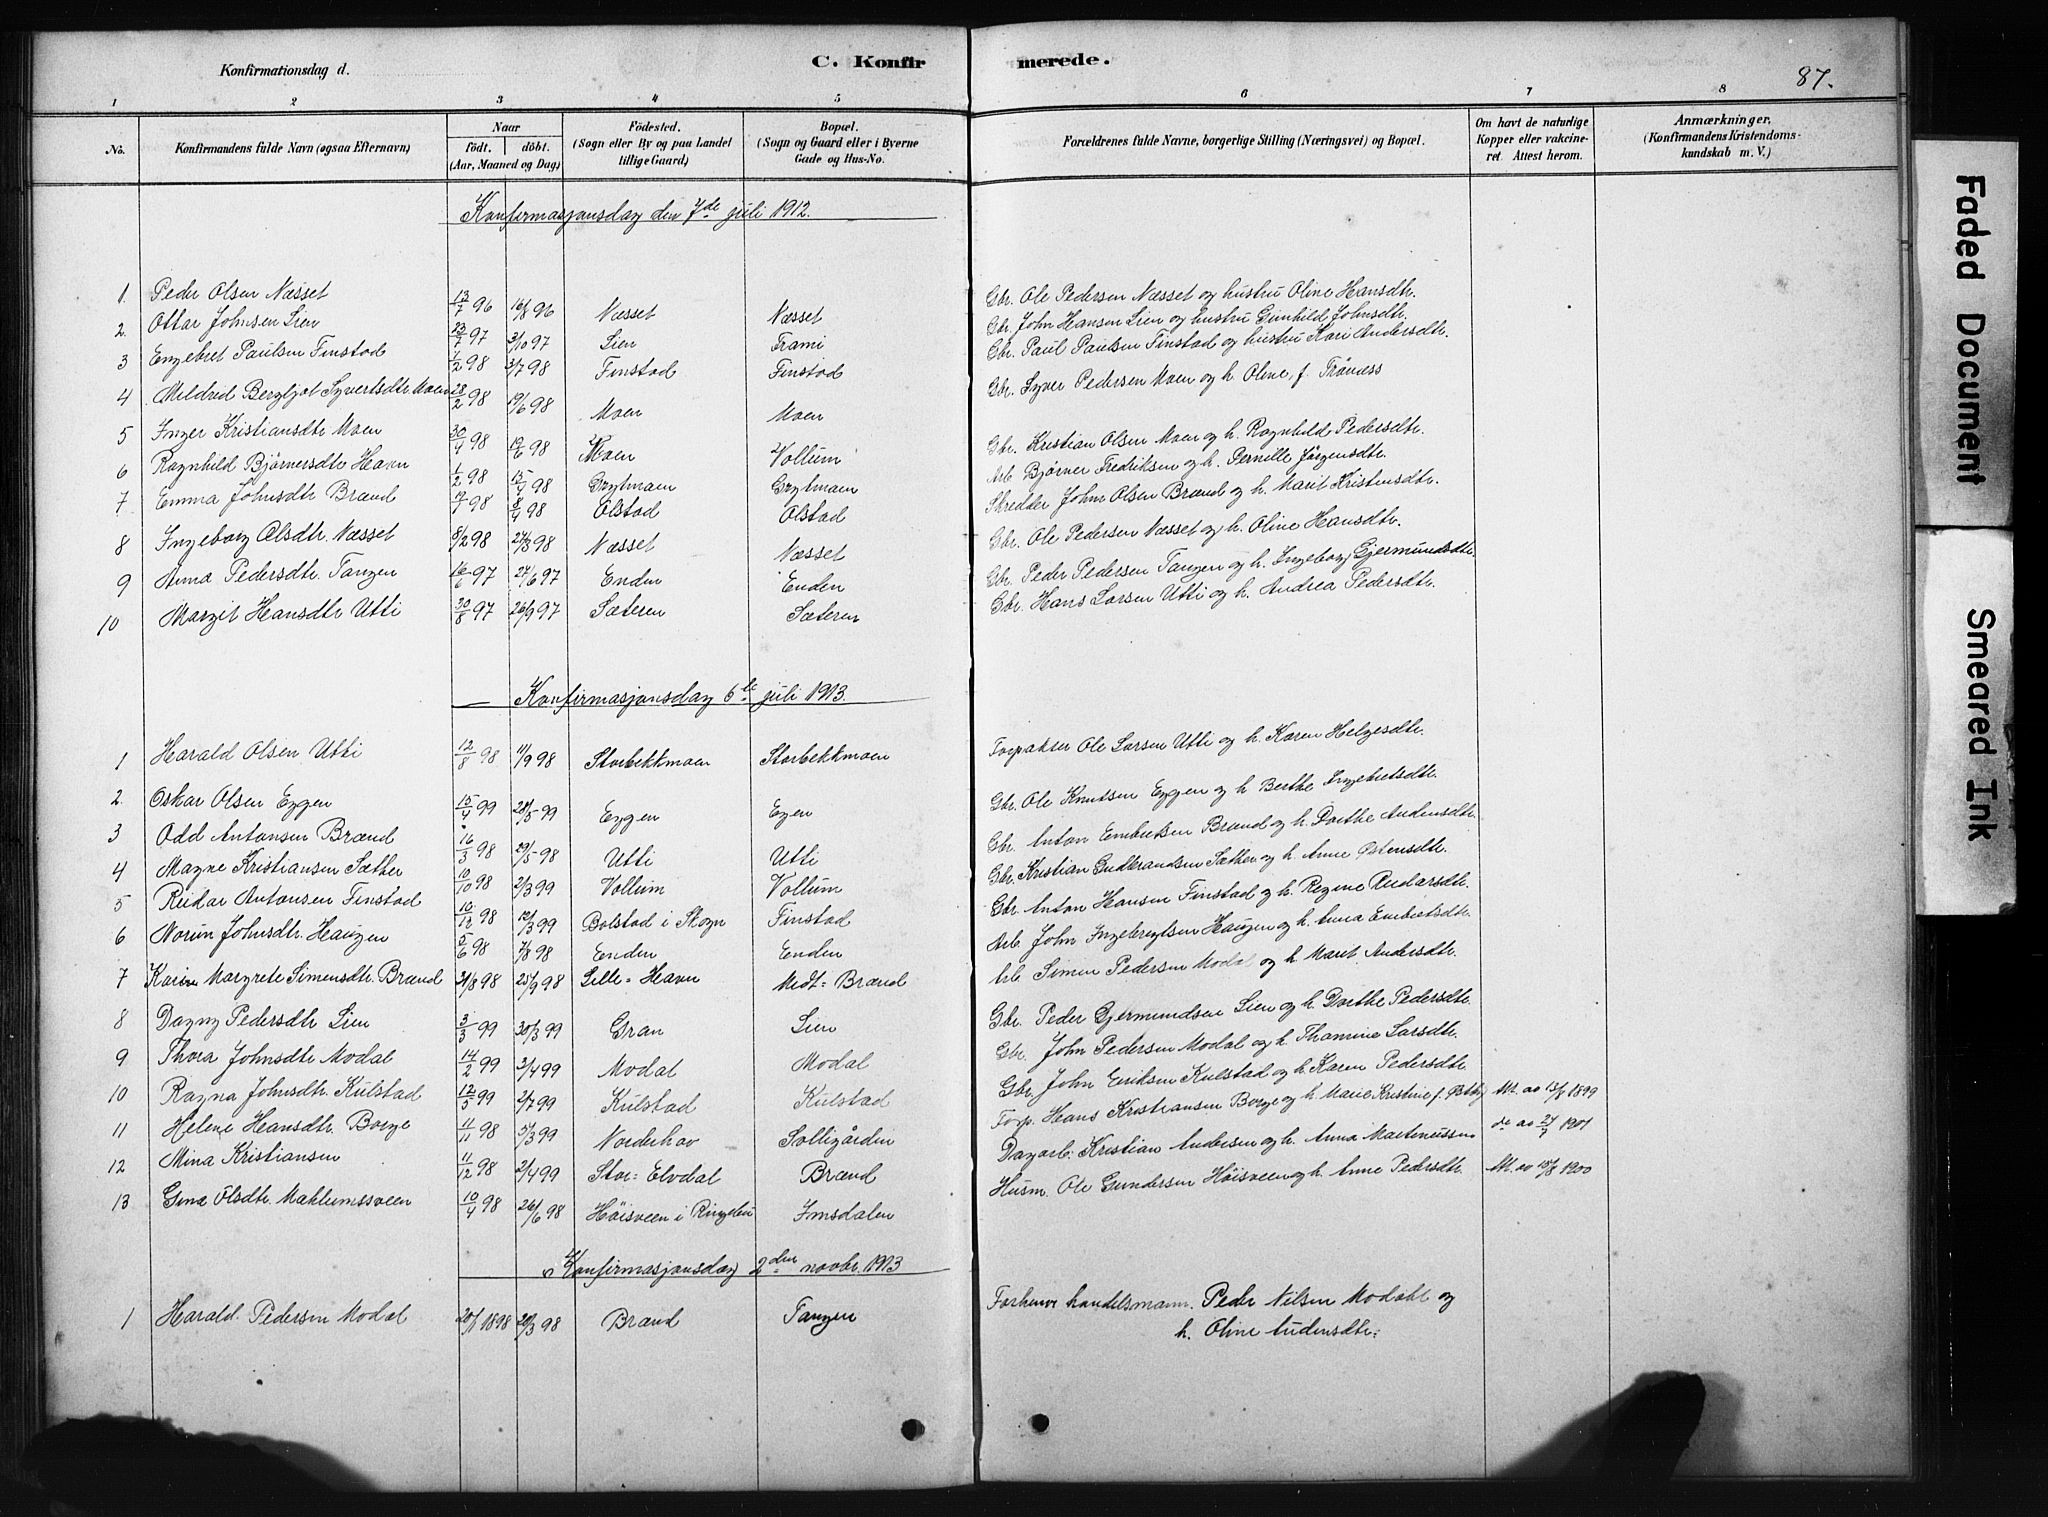 Konfirmationsdag d.
C. Konfirmerede.
87.
1 2 3 4 5 6 7 8
No. Konfirmandens fulde Navn (ogsaa Efternavn) Naar födt. döbt. (Aar, Maaned og Dag) Födested. (Sogn eller By og paa Landet tillige Gaard) Bopæl. (Sogn og Gaard eller i Byerne Gade og Hus-No. Forældrenes fulde Navne, borgerlige Stilling (Næringsvei) og Bopæl. Om havt de naturlige Kopper eller vakcineret. Attest herom. Anmærkninger. (Konfirmandens Kristendomskundskab m. V.)
Konfirmasjonsdag den 7de juli 1912.
1. Peder Olsen Næsset 13/7 96 16/8 96 Næsset Næsset Gbr. Ole Pedersen Næsset og hustru Oline Hansdtr.
2. Ottar Johnsen Lien 23/7 97 3/10 97 Lien Trami Gbr. John Hansen Lien og hustru Gunhild Johnsdtr.
3 Engebret Paulsen Finstad 1/2 98 3/7 98 Finstad Finstad Gbr. Paul Paulsen Finstad og hustru Kari Andersdtr.
4 Mildred Bergljot Syvertsdtr. Moen 28/2 98 19/6 98 Moen Moen Gbr. Syver Pedersen Moen og h. Oline, f. Trønæss
5 Inger Kristiansdtr Moen 30/4 98 19/6 98 Moen Vollum Gbr. Kristian Olsen Moen og h. Ragnhild Pedersdtr.
6 Ragnhild Bjørnersdtr Havn 1/2 98 15/4 98 Grytmoen Grytmoen Arb Bjørner Fredriksen og h. Pernille Jørgensdtr.
7 Emma Johnsdtr Brænd 98 8/4 98 Olstad Olstad Skredder John Olsen Brænd og h. Marit Kristensdtr.
8 Ingeborg Olsdtr. Næsset 8/2 98 27/3 98 Næsset Næsset Gbr. Ole Pedersen Næsset og h. Oline Hansdtr.
9 Anna Pedersdtr. Tangen 16/6 97 27/6 97 Enden Enden Gbr. Peder Pedersen Tangen og h. Ingeborg Gjermundsdtr.
10 Margit Hansdtr Utti 30/8 97 26/9 97 Sæteren Sæteren Gbr. Hans Larsen Utti og h. Andrea Pedersdtr.
Konfirmasjonsdag 6te juli 1913.
1 Harald Olsen Utti 12/8 98 11/9 98 Storbekkmoen Storbekkmoen Forpakter Ole Larsen Utti og h. Karen Helgesdtr.
2. Oskar Olsen Eggen 15/4 99 28/5 99 Eggen Egen Gbr. Ole Knutsen Eggen og h. Berthe Ingebretsdtr.
3 Odd Antonsen Brænd 16/3 98 29/5 98 Utti Utti Gbr. Anton Embretsen Brænd og h. Dorthe Audensdtr.
4 Magne Kristiansen Sæther 10/10 98 2/3 99 Vollum Vollum Gbr. Kristian Gudbrandsen Sæther og h. Anne Østensdtr.
5 Reidar Antonsen Finstad 10/12 98 12/3 99 Bolstad i Skogn Finstad Gbr. Anton Hansen Finstad og h. Regine Reidarsdtr.
6 Norun Johnsdtr. Haugen 5/6 98 7/8 98 Enden Enden Arb. John Ingebregtsen Haugen og h. Anna Embretsdtr.
7 Karen Margrete Simensdtr. Brænd 21/8 98 25/9 98 Lille-Havn Medt-Brænd Arb. Simen Pedersen Modal og h. Maret Andersdtr.
8 Dagny Pedersdtr Lien 3/3 99 30/3 99 Gran Lien Gbr. Peder Gjermundsen Lien og h. Dorthe Pedersdtr.
9 Thora Johnsdtr Modal 14/2 99 3/4 99 Modal Modal Gbr. John Pedersen Modal og h. Thomine Larsdtr.
10 Ragna Johnsdtr Kulstad 12/5 99 2/7 99 Kulstad Kulstad Gbr. John Eriksen Kulstad og h. Karen Pedersdtr.
11 Helene Hansdtr. Borge 11/11 98 5/3 99 Norderhov Solligården Forp. Hans Kristiansen Borge og h. Marie Kristine f. At. av 13/8 1899
12 Mina Kristiansen 11/12 98 2/4 99 Stor-Elvdal Brænd Dagarb. Kristian Andersen og h. Anna Martenussen do av 27/7 1901
13 Gina Olsdtr. Mahlumssveen 10/4 98 26/6 98 Höisveen i Ringebu Imsdalen Husm. Ole Gundersen Höisveen og h. Anne Pedersdtr. At. av 15/8 1900
Konfirmasjonsdag 2den novbr. 1913
1 Harald Pedersen Modal 20/1 1898 20/3 98 Brænd Tangen Forhenv. handelsmann. Peder Nilsen Modahl og
h. Oline Audensdtr.
Faded Document
Smeared Ink